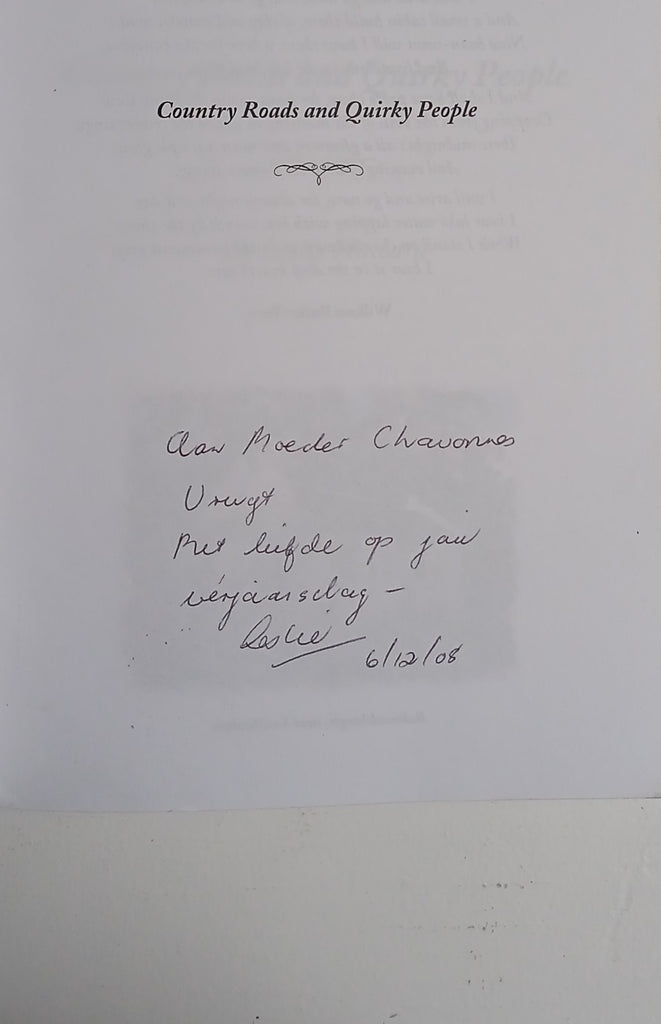 Country Roads and Quirky People
Aan Moeder Chavonnes
Vrugt
Met liefde op jou
verjaarsdag –
Leslie
6/12/08